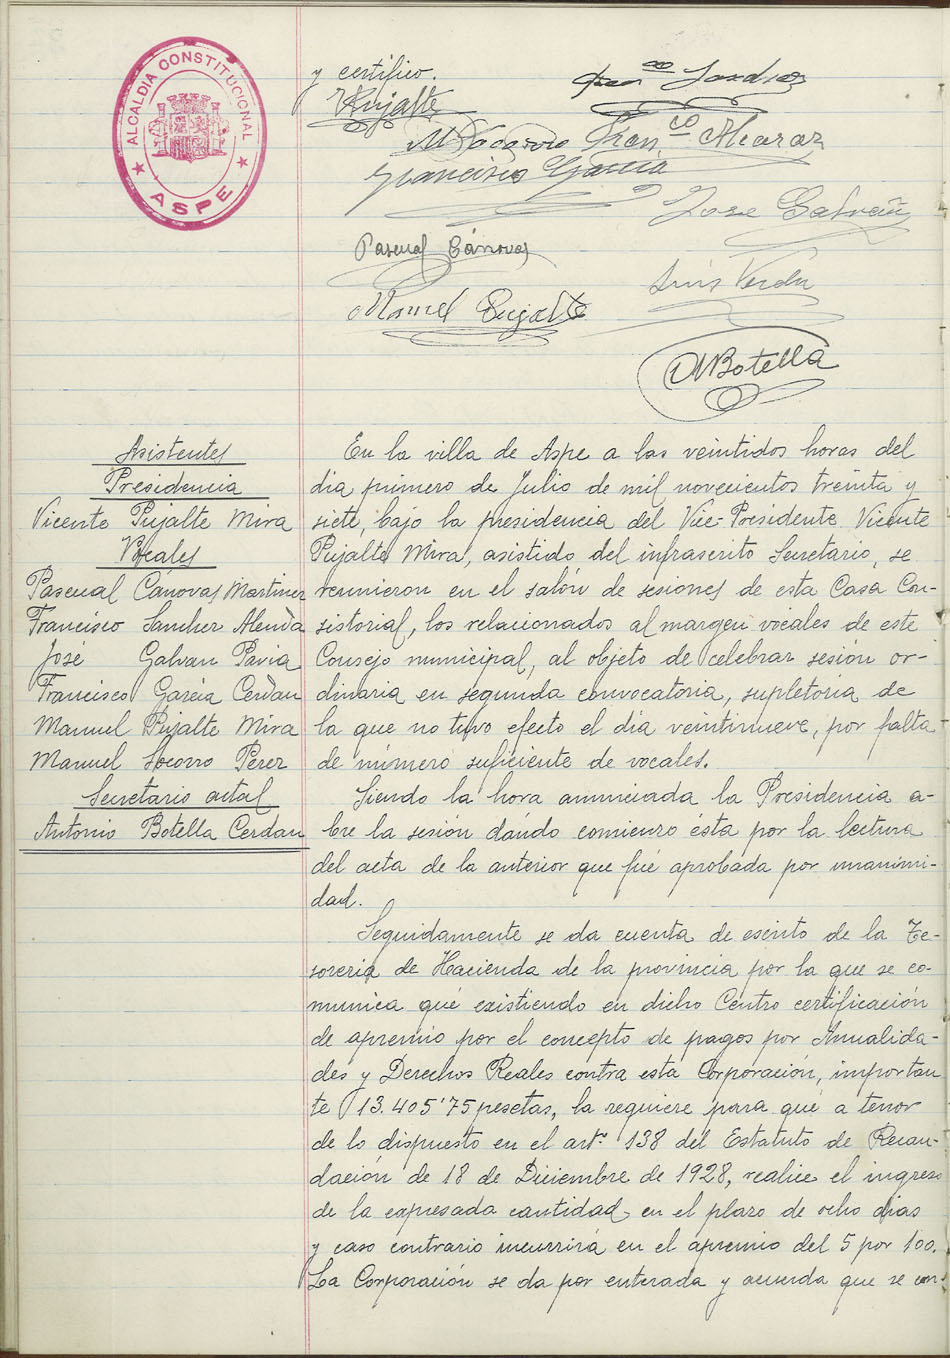 ALCALDIA CONSTITUCIONAL
ASPE
y certifico.
VPujalte
M Socorro Franco Alcaraz
Francisco García
José Galvañ
Pascual Cánovas
Luis Verdu
Manuel Pujalte
ABotella
Asistentes
Presidencia
Vicente Pujalte Mira
Vocales
Pascual Cánovas Martinez
Francisco Sanchez Alenda
José Galvan Pavia
Francisco Garcia Cerdan
Manuel Pujalte Mira
Manuel Socorro Perez
Secretario actal
Antonio Botella Cerdan
En la villa de Aspe a las veintidos horas del
dia primero de Julio de mil novecientos treinta y
siete, bajo la presidencia del Vice-Presidente Vicente
Pujalte Mira, asistido del infrascrito Secretario, se
reunieron en el salón de sesiones de esta Casa Con-
sistorial, los relacionados al margen vocales de este
Consejo municipal, al objeto de celebrar sesión or-
dinaria en segunda convocatoria, supletoria de
la que no tuvo efecto el día veintinueve, por falta
de número suficiente de vocales.
Siendo la hora anunciada la Presidencia a-
bre la sesión dando comienzo ésta por la lectura
del acta de la anterior que fué aprobada por unanimi-
dad.
Seguidamente se da cuenta de escrito de la Te-
soreria de Hacienda de la provincia por la que se co-
munica que existiendo en dicho Centro certificación
de apremio por el concepto de pagos por Anualida-
des y Derechos Reales contra esta Corporación, importan
te 13.405'75 pesetas, la requiere para que a tenor
de lo dispuesto en el artº 138 del Estatuto de Recau-
dación de 18 de Diciembre de 1928, realice el ingreso
de la expresada cantidad en el plazo de ocho dias
y caso contrario incurrirá en el apremio del 5 por 100.
La Corporación se da por enterada y acuerda que se con-